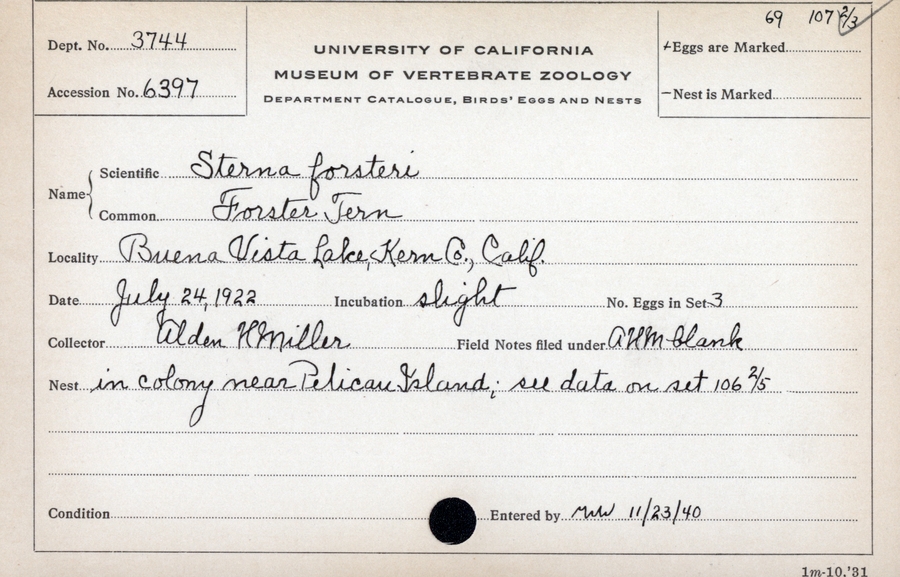 69 107 2/3
Dept. No. 3744
UNIVERSITY OF CALIFORNIA
+Eggs are Marked
MUSEUM OF VERTEBRATE ZOOLOGY
Accession No. 6397
DEPARTMENT CATALOGUE, BIRDS' EGGS AND NESTS
—Nest is Marked
Name
Scientific Sterna forsteri
Common Forster Tern
Locality Buena Vista Lake, Kern Co., Calif.
Date July 24, 1922 Incubation slight No. Eggs in Set 3
Collector Alden H Miller Field Notes filed under AHM blank
Nest in colony near Pelican Island; see data on set 106 2/5
Condition Entered by 11/23/40
1m-10,'31